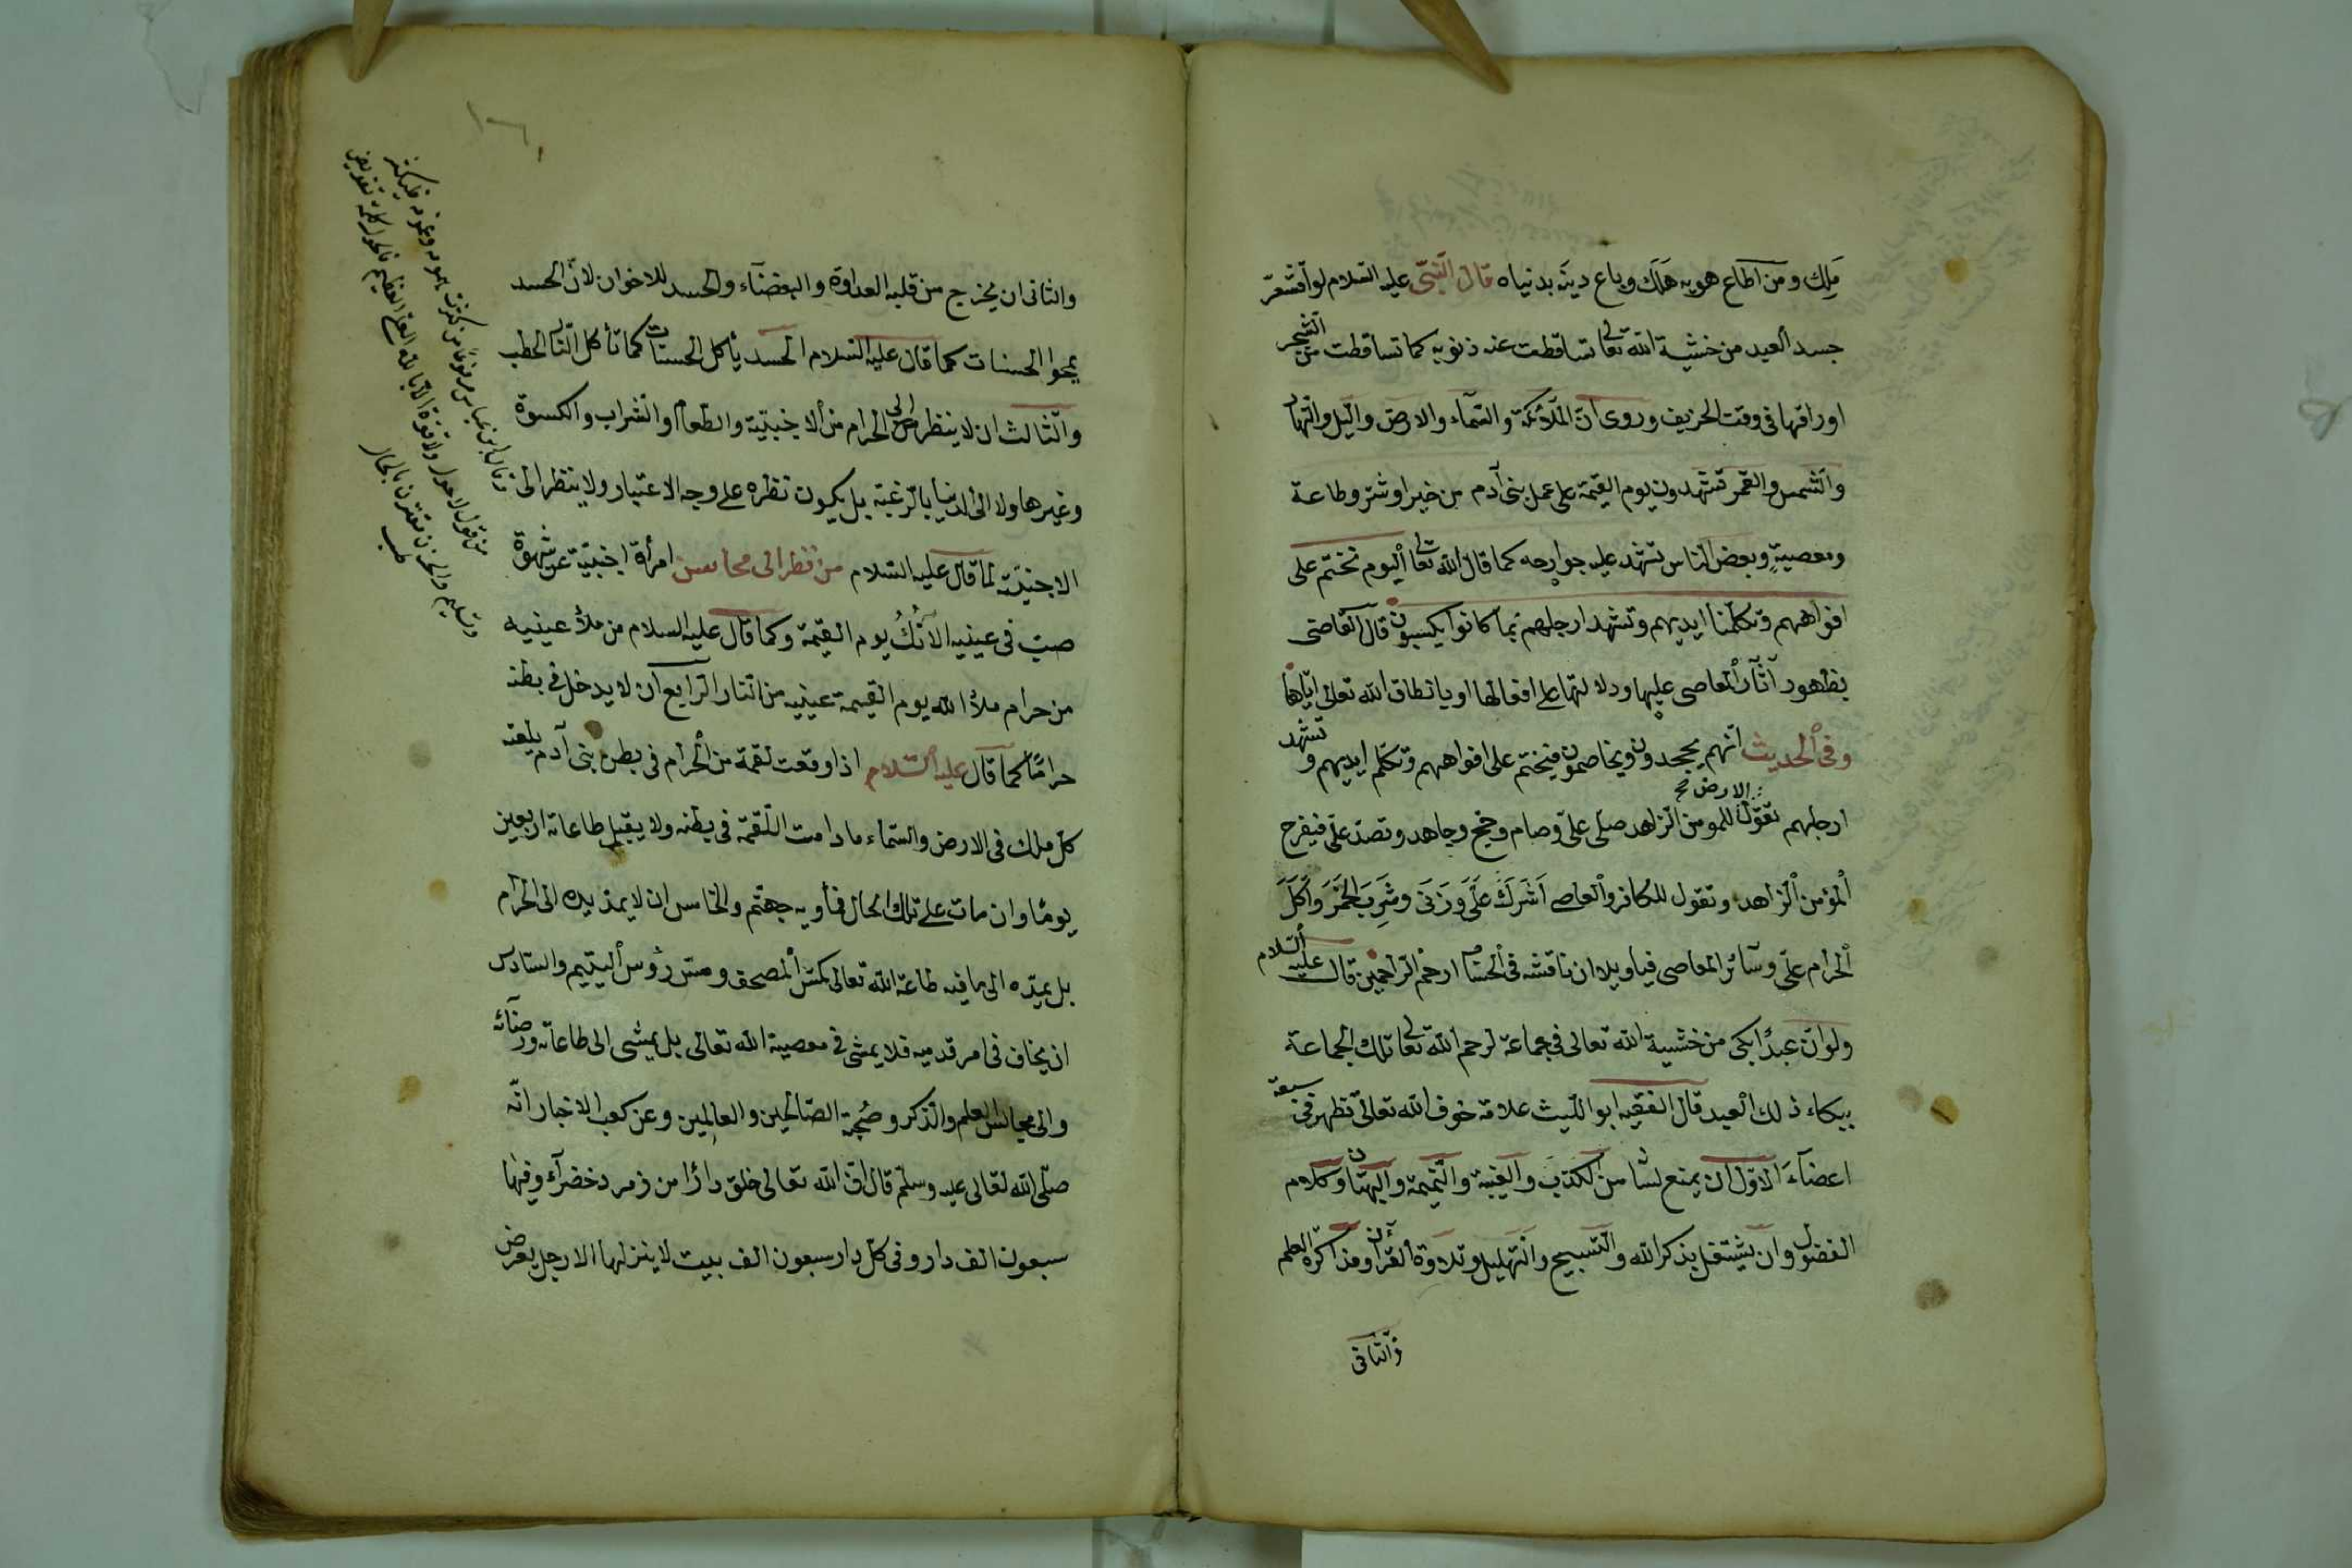 مَلِك ومن اطاع هويه هَلَك وباع دينَه بدنياه قال النّبىّ عليه السّلام لو اقشعرّ
جسد العبد من خشية الله تعالى تساقطت عنه ذنوبه كما تساقطت من الشّجر
اوراقها فى وقت الخريف وروى انّ الملائكة والسّماء والارض والّيل والنّهار
والشّمس والقمر تشهدون يوم القيمة على عمل بنى آدم من خير او شرّ وطاعة
ومعصيةٍ وبعض النّاس تشهد عليه جوارحه كما قال الله تعالى اليوم نختم على
افواههم وتكلّمنا ايديهم وتشهد ارجلهم بما كانوا يكسبون قال القاضى
بظهور آثار المعاصى عليها ودلالتها على افعالها او بانطاق الله تعالى ايّاها
وفى الحديث انّهم يجحدون ويخاصمون فيختم على افواههم وتكلّم ايديهم وتشهد
ارجلهم تقول الارض للمومن الزاهد صلّى علىّ وصام وحجّ وجاهد وتصدّ علىّ فيفرح
المؤمن الزاهد وتقول للكافر والعاصى اَشَرَكَ عَلَىَّ وَزَنَى وشَرِبَ الخَمْرَ وَاَكَلَ
الحرام علىّ وسائر المعاصى فيا ويلا ان ناقشه فى الحساب ارحم الرّاحمين قال عليه السّلام
ولو انّ عبدًا بكى من خشية الله تعالى فى جماعة لرحم الله تعالى تلك الجماعة
ببكاء ذلك العبد قال الفقيه ابو اللّيث علامة خوف الله تعالى تظهر فى سبعة
اعضآءَ الاوّل ان يمنع لسانه من الكذب والغيبة والنّميمة والبهتان وكلام
الفضول وان يشتغل بذكر الله والتّسبيح والتّهليل وتلاوة القرآن ومذاكرة العلم
والثّانى
والثانى ان يخرج من قلبه العداوة والبغضآء والحسد للاخوان لانّ الحسد
يمحوا الحسنات كما قال عليه السّلام الحسد يأكل الحسنات كما تأكل النّار الحطب
والثّالث ان لا ينظر الى الحرام من الاجنبيّة والطّعام والشراب والكسوة
وغيرها ولا الى الدنيا بالرّغبة بل يكون نظره على وجه الاعتبار ولا ينظر الى
الاجنبيّة لما قال عليه السّلام من نظر الى محاسن امرأة اجنبيّة عن شهوة
صبّ فى عينيه الآنُكُ يوم القيمة وكما قال عليه السلام من ملأ عينيه
من حرام ملأ الله يوم القيمة عينيه من النّار الرّابع ان لا يدخل فى بطنه
حرامًا كما قال عليه السّلام اذا وقعت لقمة من الحرام فى بطن بنى آدم يلعنه
كلّ ملك فى الارض والسّماء ما دامت اللّقمة فى بطنه ولا يقبل طاعاته اربعين
يومًا وان مات على تلك الحال فمأويه جهنّم والخامس ان لا يمدّ يده الى الحرام
بل يمدّه الى ما فيه طاعة الله تعالى كمسّ المصحف ومسّ رؤس اليتيم والسّادس
ان يخاف فى امر قدميه فلا يمشى فى معصية الله تعالى بل يمشى الى طاعاته ورضائه
والى مجالس العلم والذّكر وصُحبة الصّالحين والعالمين وعن كعب الاخبار انّه
صلّى الله تعالى عليه وسلّم قال انّ الله تعالى خلق دارًا من زمرد خضرآء وفيها
سبعون الف دار وفى كلّ دار سبعون الف بيت لا ينزلها الا رجل يعرض
عن ابن عباس مرفوعا من كثرت همومه وغمومه فليكثر
من قول لا حول ولا قوة الا بالله العلى العظيم